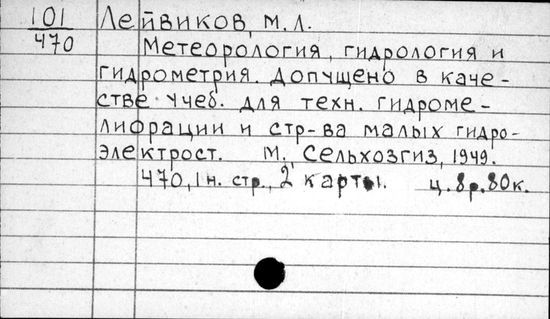 101 Лейвиков, М.Л.
470 Метеорология, гидрология и
гидрометрия. Допущено в каче-
стве учеб. для техн. гидроме-
лифрации и стр-ва малых гидро-
электрост. М., Сельхозгиз, 1949.
470, 1 н. стр., 2 карты. ц. 8р. 80к.